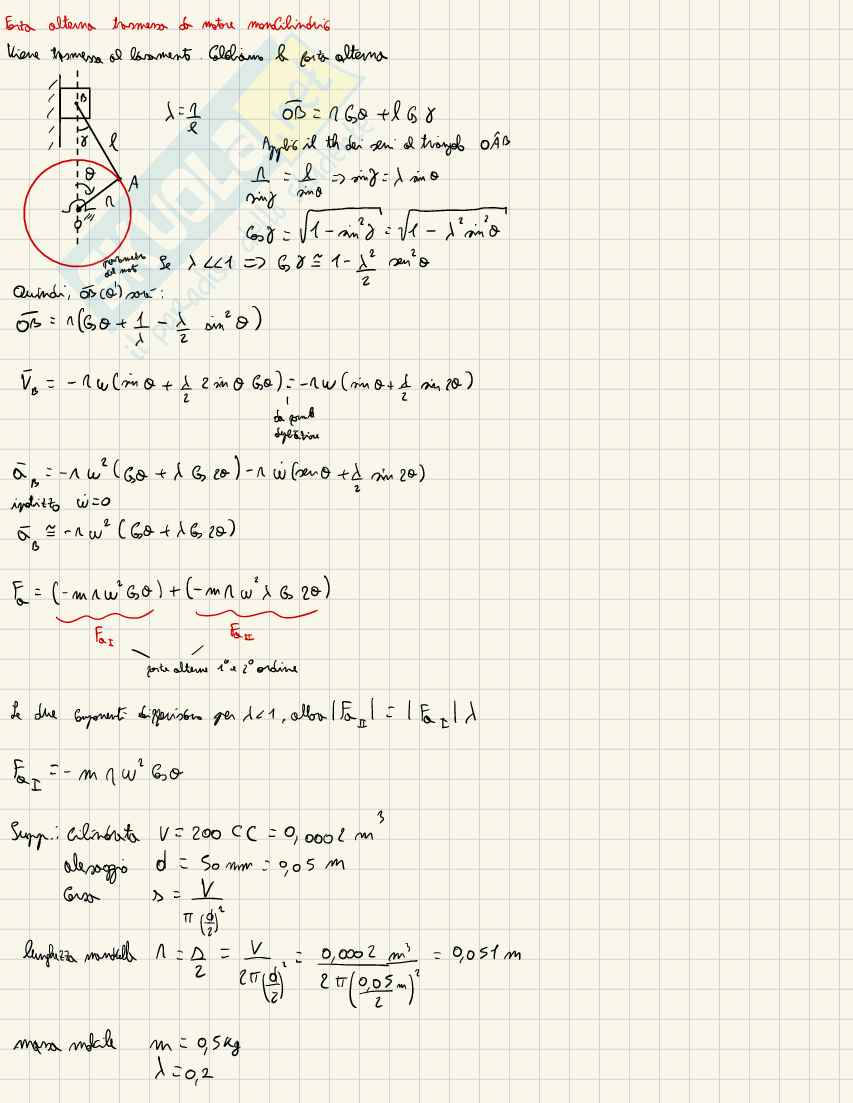 Forza alterna trasmessa da motore monocilindrico
Viene trasmessa al basamento. Calcoliamo la forza alterna
B
λ = r/l
OB = r cos θ + l cos γ
γ
l
Applico il th dei seni al triangolo OÂB
θ
A
r
O
r/sin γ = l/sin θ ⇒ sin γ = λ sin θ
cos γ = √(1 - sin² γ) = √(1 - λ² sin² θ)
parametro del mot
Se λ << 1 ⇒ cos γ ≅ 1 - λ²/2 sen² θ
Quindi, OB(θ) sarà:
OB = r(cos θ + 1/λ - λ/2 sin² θ)
V_B = - r ω (sin θ + λ/2 2 sin θ cos θ) = - r ω (sin θ + λ/2 sin 2θ)
da formule duplicazione
a_B = - r ω² (cos θ + λ cos 2θ) - r ω̇ (sen θ + λ/2 sin 2θ)
ipotizzo ω̇ = 0
a_B ≅ - r ω² (cos θ + λ cos 2θ)
F_a = (- m r ω² cos θ) + (- m r ω² λ cos 2θ)
F_aI F_aII
forze alterne 1° e 2° ordine
Le due componenti differiscono per λ < 1, allora |F_aII| = |F_aI| λ
F_aI = - m r ω² cos θ
Supp.: cilindrata V = 200 CC = 0,0002 m³
alesaggio d = 50 mm = 0,05 m
Corsa s = V/(π (d/2)²)
lunghezza manovella r = s/2 = V/(2π (d/2)²) = 0,0002 m³/(2π (0,05 m/2)²) = 0,051 m
massa m = 0,5 kg
λ = 0,2
SKUOLA.net